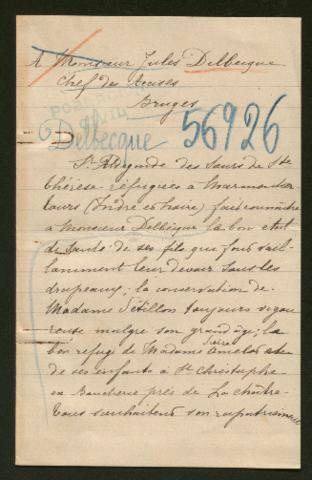 A Monsieur Jules Delbecque
Chef de
Bruges
Delbecque 56926
Sr Aldegonde des Sœurs de Ste
Thérèse réfugiées à Marmoutier
Tours (Indre et Loire) fait connaître
à Monsieur Delbecque le bon état
de santé de ses fils qui font vail-
lamment leur devoir sous les
drapeaux; la conservation de
Madame Pétillon toujours vigou
reuse malgré son grand âge; le
bon refuge de Madame Amelot et
de ses enfants à St Christophe
en Boucherie près de La Châtre
Tous souhaitent son rapatriement